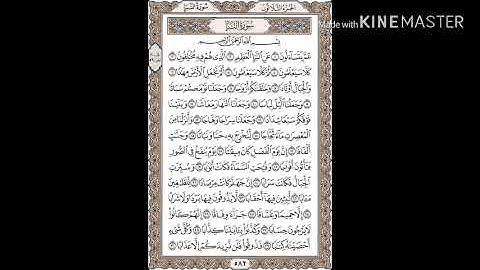 Made with KINEMASTER
الجزء الثلاثون سورة النبأ
سورة النبإ
بسم الله الرحمن الرحيم
عم يتساءلون ١ عن النبإ العظيم ٢ الذي هم فيه مختلفون ٣
كلا سيعلمون ٤ ثم كلا سيعلمون ٥ ألم نجعل الأرض مهدا ٦
والجبال أوتادا ٧ وخلقنكم أزوجا ٨ وجعلنا نومكم سباتا ٩
وجعلنا اليل لباسا ١٠ وجعلنا النهار معاشا ١١ وبنينا
فوقكم سبعا شدادا ١٢ وجعلنا سراجا وهاجا ١٣ وأنزلنا من
المعصرت ماء ثجاجا ١٤ لنخرج به حبا ونباتا ١٥ وجنت
ألفافا ١٦ إن يوم الفصل كان ميقتا ١٧ يوم ينفخ في الصور
فتأتون أفواجا ١٨ وفتحت السماء فكانت أبوبا ١٩ وسيرت
الجبال فكانت سرابا ٢٠ إن جهنم كانت مرصادا ٢١ للطغين
مابا ٢٢ لبثين فيها أحقابا ٢٣ لا يذوقون فيها بردا ولا شرابا
٢٤ إلا حميما وغساقا ٢٥ جزاء وفاقا ٢٦ إنهم كانوا
لا يرجون حسابا ٢٧ وكذبوا بايتنا كذابا ٢٨ وكل شيء
أحصينه كتبا ٢٩ فذوقوا فلن نزيدكم إلا عذابا ٣٠
٥٨٢